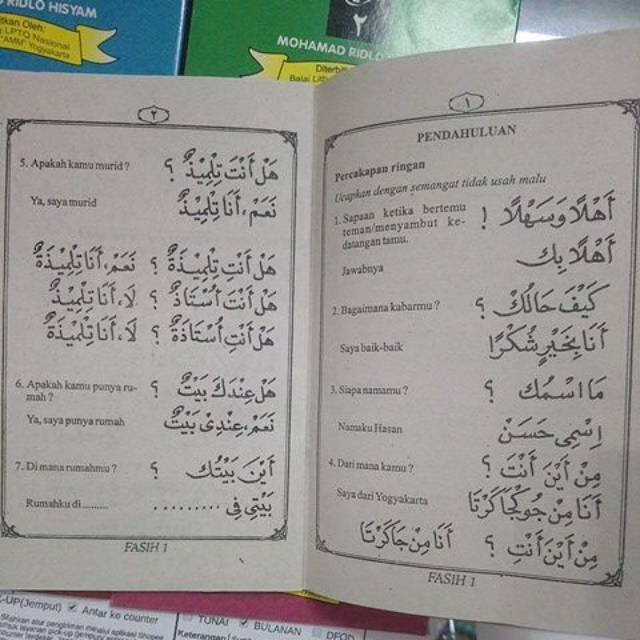 RIDLO HISYAM
LPTQ Nasional
"AMM" Yogyakarta
٢
MOHAMAD RIDLO
١
PENDAHULUAN
Percakapan ringan
Ucapkan dengan semangat tidak usah malu
1. Sapaan ketika bertemu teman/menyambut ke-
datangan tamu.
أَهْلًا وَسَهْلًا !
Jawabnya
أَهْلًا بِك
2. Bagaimana kabarmu ?
كَيْفَ حَالُكْ ؟
Saya baik-baik
أَنَا بِخَيْرٍ شُكْرًا
3. Siapa namamu ?
مَا اسْمُك ؟
Namaku Hasan
اِسْمِى حَسَنْ
4. Dari mana kamu ?
مِنْ اَيْنَ أَنْتَ ؟
Saya dari Yogyakarta
أَنَا مِنْ جُوكْجَاكَرْتَا
مِنْ اَيْنَ أَنْتِ ؟ أَنَا مِنْ جَاكَرْتَا
FASIH 1
٢
5. Apakah kamu murid ?
هَلْ أَنْتَ تِلْمِيْذٌ ؟
Ya, saya murid
نَعَمْ، أَنَا تِلْمِيْذٌ
هَلْ أَنْتِ تِلْمِيْذَةٌ ؟ نَعَمْ، أَنَا تِلْمِيْذَةٌ
هَلْ أَنْتَ أُسْتَاذٌ ؟ لَا، أَنَا تِلْمِيْذٌ
هَلْ أَنْتِ أُسْتَاذَةٌ ؟ لَا، أَنَا تِلْمِيْذَةٌ
6. Apakah kamu punya ru-
mah ?
هَلْ عِنْدَكَ بَيْتٌ ؟
Ya, saya punya rumah
نَعَمْ، عِنْدِىْ بَيْتٌ
7. Di mana rumahmu ?
أَيْنَ بَيْتُك ؟
Rumahku di .........
بَيْتِى فِى .........
FASIH 1
-UP(Jemput) Antar ke counter
TUNAI BULANAN DFOD